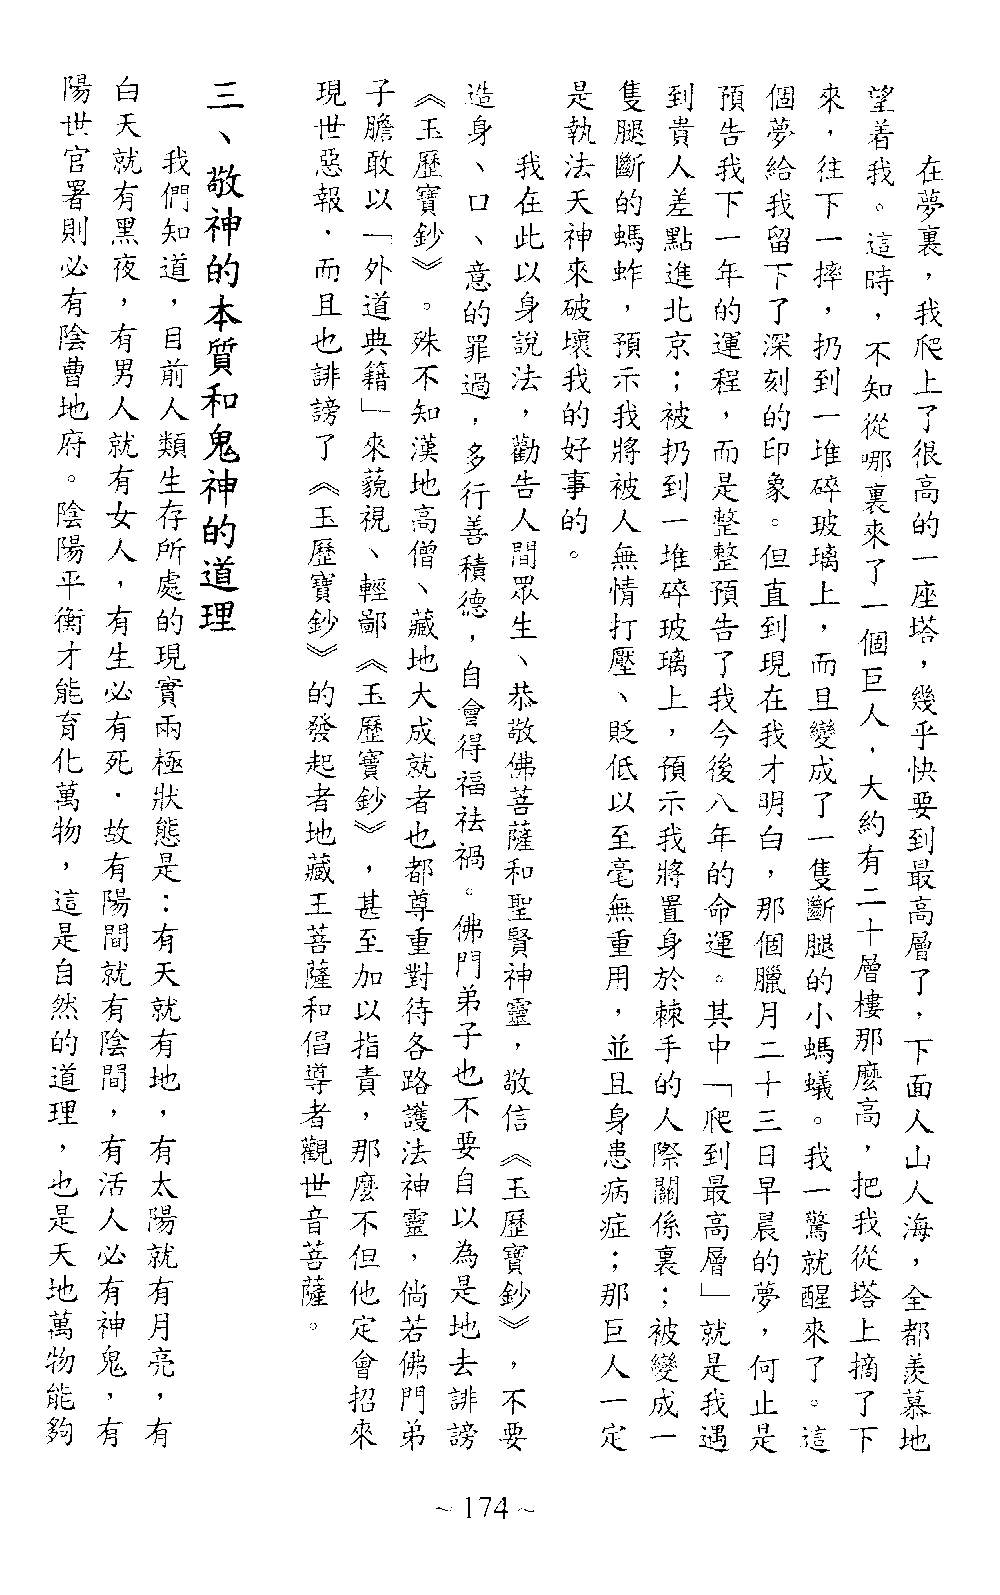 在夢裏，我爬上了很高的一座塔，幾乎快要到最高層了，下面人山人海，全都羨慕地
望着我。這時，不知從哪裏來了一個巨人，大約有二十層樓那麼高，把我從塔上摘了下
來，往下一摔，扔到一堆碎玻璃上，而且變成了一隻斷腿的小螞蟻。我一驚就醒來了。這
個夢給我留下了深刻的印象。但直到現在我才明白，那個臘月二十三日早晨的夢，何止是
預告我下一年的運程，而是整整預告了我今後八年的命運。其中「爬到最高層」就是我遇
到貴人差點進北京；被扔到一堆碎玻璃上，預示我將置身於棘手的人際關係裏；被變成一
隻腿斷的螞蚱，預示我將被人無情打壓、貶低以至毫無重用，並且身患病症；那巨人一定
是執法天神來破壞我的好事的。
我在此以身說法，勸告人間眾生、恭敬佛菩薩和聖賢神靈，敬信《玉歷寶鈔》，不要
造身、口、意的罪過，多行善積德，自會得福祛禍。佛門弟子也不要自以為是地去誹謗
《玉歷寶鈔》。殊不知漢地高僧、藏地大成就者也都尊重對待各路護法神靈，倘若佛門弟
子膽敢以「外道典籍」來藐視、輕鄙《玉歷寶鈔》，甚至加以指責，那麼不但他定會招來
現世惡報，而且也誹謗了《玉歷寶鈔》的發起者地藏王菩薩和倡導者觀世音菩薩。
三、敬神的本質和鬼神的道理
我們知道，目前人類生存所處的現實兩極狀態是：有天就有地，有太陽就有月亮，有
白天就有黑夜，有男人就有女人，有生必有死．故有陽間就有陰間，有活人必有神鬼，有
陽世官署則必有陰曹地府。陰陽平衡才能育化萬物，這是自然的道理，也是天地萬物能夠
~174~